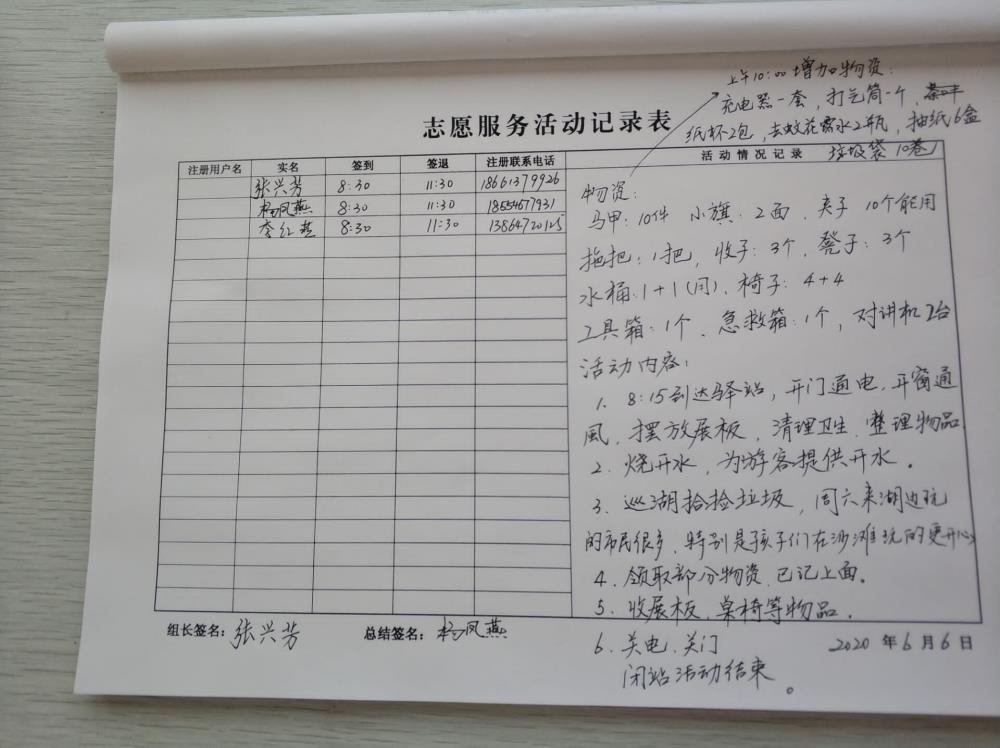 上午10:00增加物资:
充电器一套,打气筒一个,
纸杯2包,去蚊花露水2瓶,抽纸6盒
垃圾袋10卷
志愿服务活动记录表
注册用户名 实名 签到 签退 注册联系电话 活动情况记录
张兴芳 8:30 11:30 18661379926
杨凤燕 8:30 11:30 18554577931
李红燕 8:30 11:30 13864720125
物资:
马甲:10件 小旗:2面、夹子10个能用
拖把:1把,收子:3个,凳子:3个
水桶:1+1(闫)、椅子:4+4
工具箱:1个、急救箱:1个,对讲机2台
活动内容:
1、8:15到达驿站,开门通电、开窗通
风、摆放展板,清理卫生、整理物品
2、烧开水,为游客提供开水。
3、巡湖拾捡垃圾,周六来湖边玩
的市民很多,特别是孩子们在沙滩玩的更开心
4、领取部分物资、已记上面。
5、收展板、桌椅等物品。
6、关电、关门
闭站活动结束。
组长签名:张兴芳 总结签名:杨凤燕 2020年6月6日